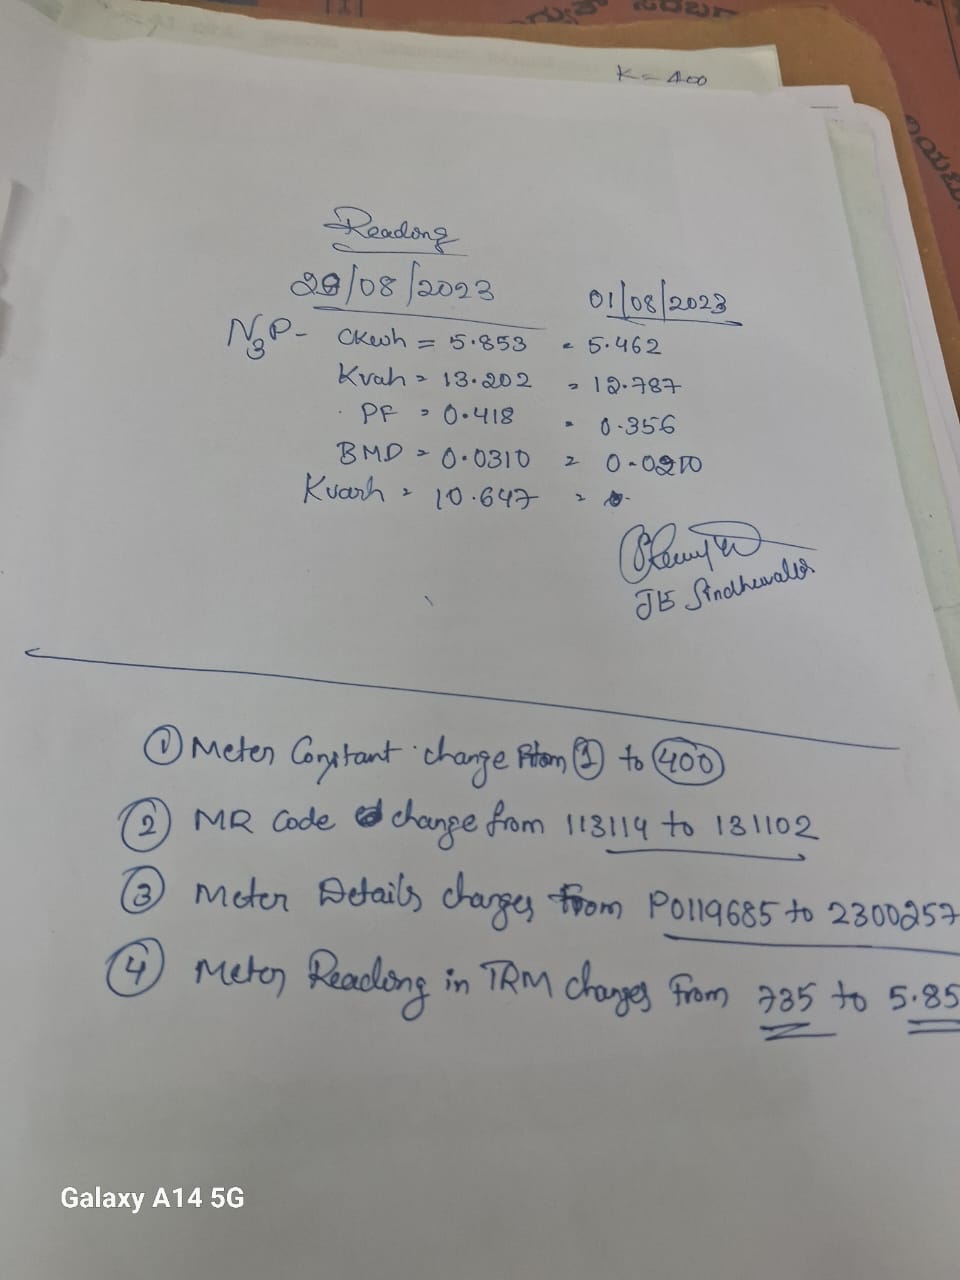 K = 400
Reading
28/08/2023 01/08/2023
N3P- CKwh = 5.853 = 5.462
Kvah = 13.202 = 12.787
PF = 0.418 = 0.356
BMD = 0.0310 = 0.0210
Kvarh = 10.647 =
JE Sindhuvalli
① Meter Constant change From ① to 400
② MR Code change from 113114 to 131102
③ Meter Details changes From P0119685 to 2300257
④ Meter Reading in TRM changes From 735 to 5.85
Galaxy A14 5G